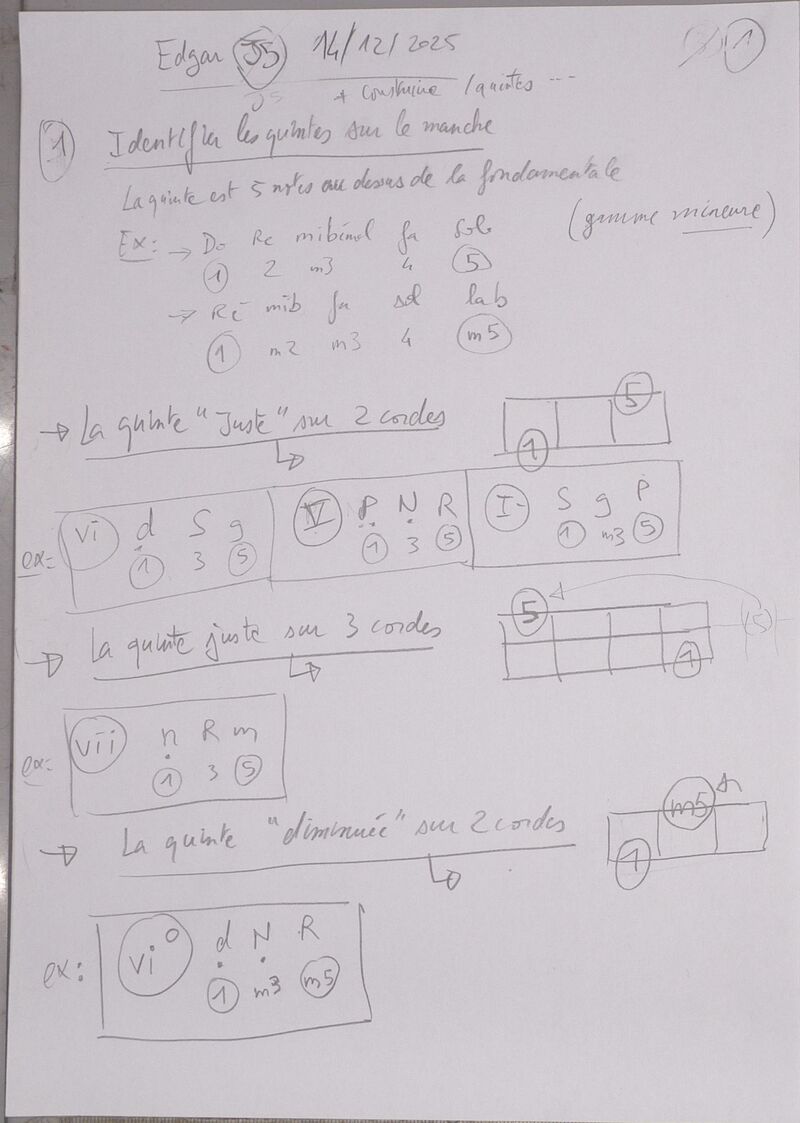 Edgar J5 14/12/2025 1
+ construire / quintes ...
1 Identifier les quintes sur le manche
La quinte est 5 notes au dessus de la fondamentale
(gamme mineure)
Ex: → Do Re mibémol fa sol
1 2 m3 4 5
→ Ré mib fa sol lab
1 m2 m3 4 m5
→ La quinte "Juste" sur 2 cordes
5
1
ex: vi d S g V P N R I- S g P
1 3 5 1 3 5 1 m3 5
→ La quinte juste sur 3 cordes
5 (5)
1
ex: vii n R m
1 3 5
→ La quinte "diminuée" sur 2 cordes
m5
1
ex: vi° d N R
1 m3 m5